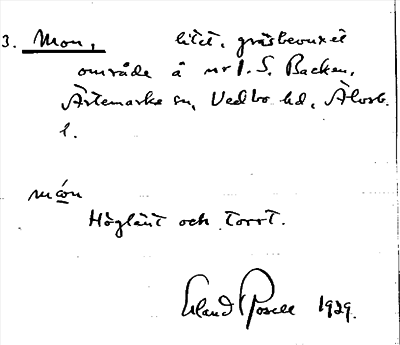 3. Mon, litet, gräsbevuxet
område å nr 1. S. Backen,
Ärtemarks sn, Vedbo hd, Älvsb.
l.
món
Höglänt och torrt.
Erland Rosell 1929.